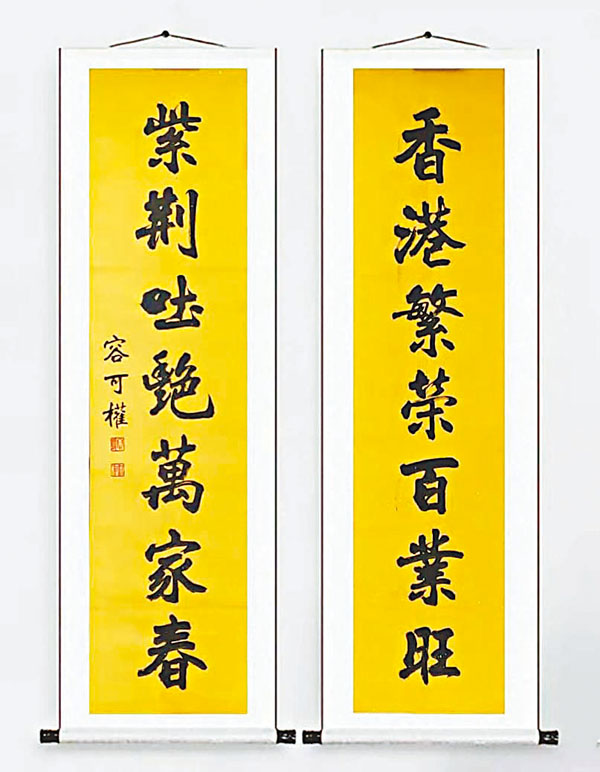 香港繁荣百業旺
紫荆吐艷萬家春
容可權